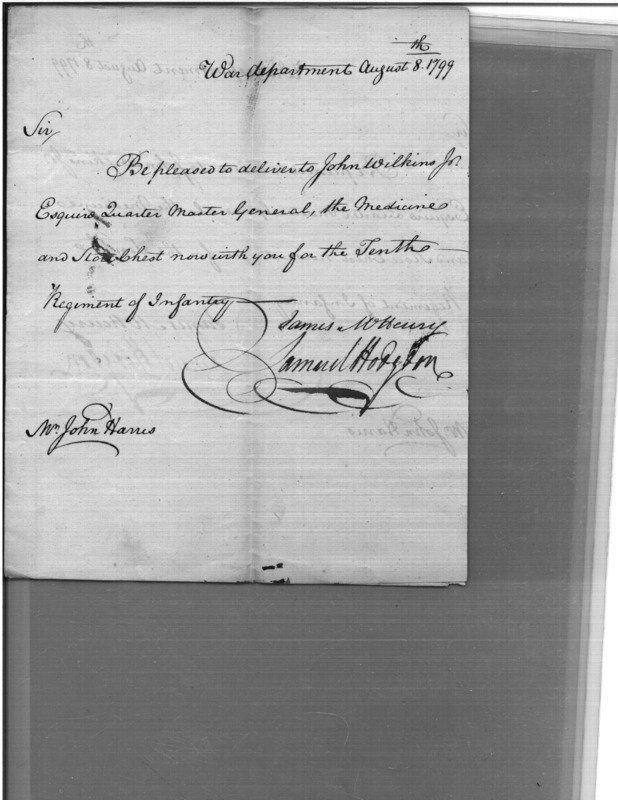 War department August 8.th 1799
Sir,
Be pleased to deliver to John Wilkins Jr.
Esquire Quarter Master General, the Medicine
and Store Chest now with you for the Tenth
Regiment of Infantry
James McHenry
Samuel Hodgdon
Mr. John Harris